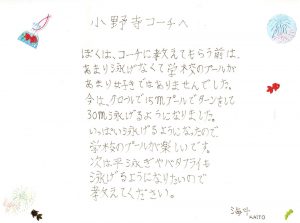 小野寺コーチへ
ぼくは、コーチに教えてもらう前は、
あまり泳げなくて学校のプールが
あまり好きではありませんでした。
今は、クロールで15mプールでターンをして
30m泳げるようになりました。
いっぱい泳げるようになったので
学校のプールが楽しいです。
次は平泳ぎやバタフライも
泳げるようになりたいので
教えてください。
海斗
KAITO